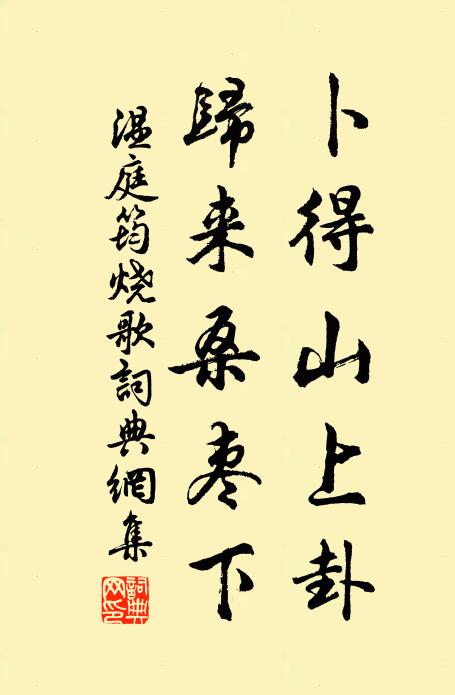 卜得山上卦
歸来桑枣下
温庭筠烧歌詞典網集
詞典網印